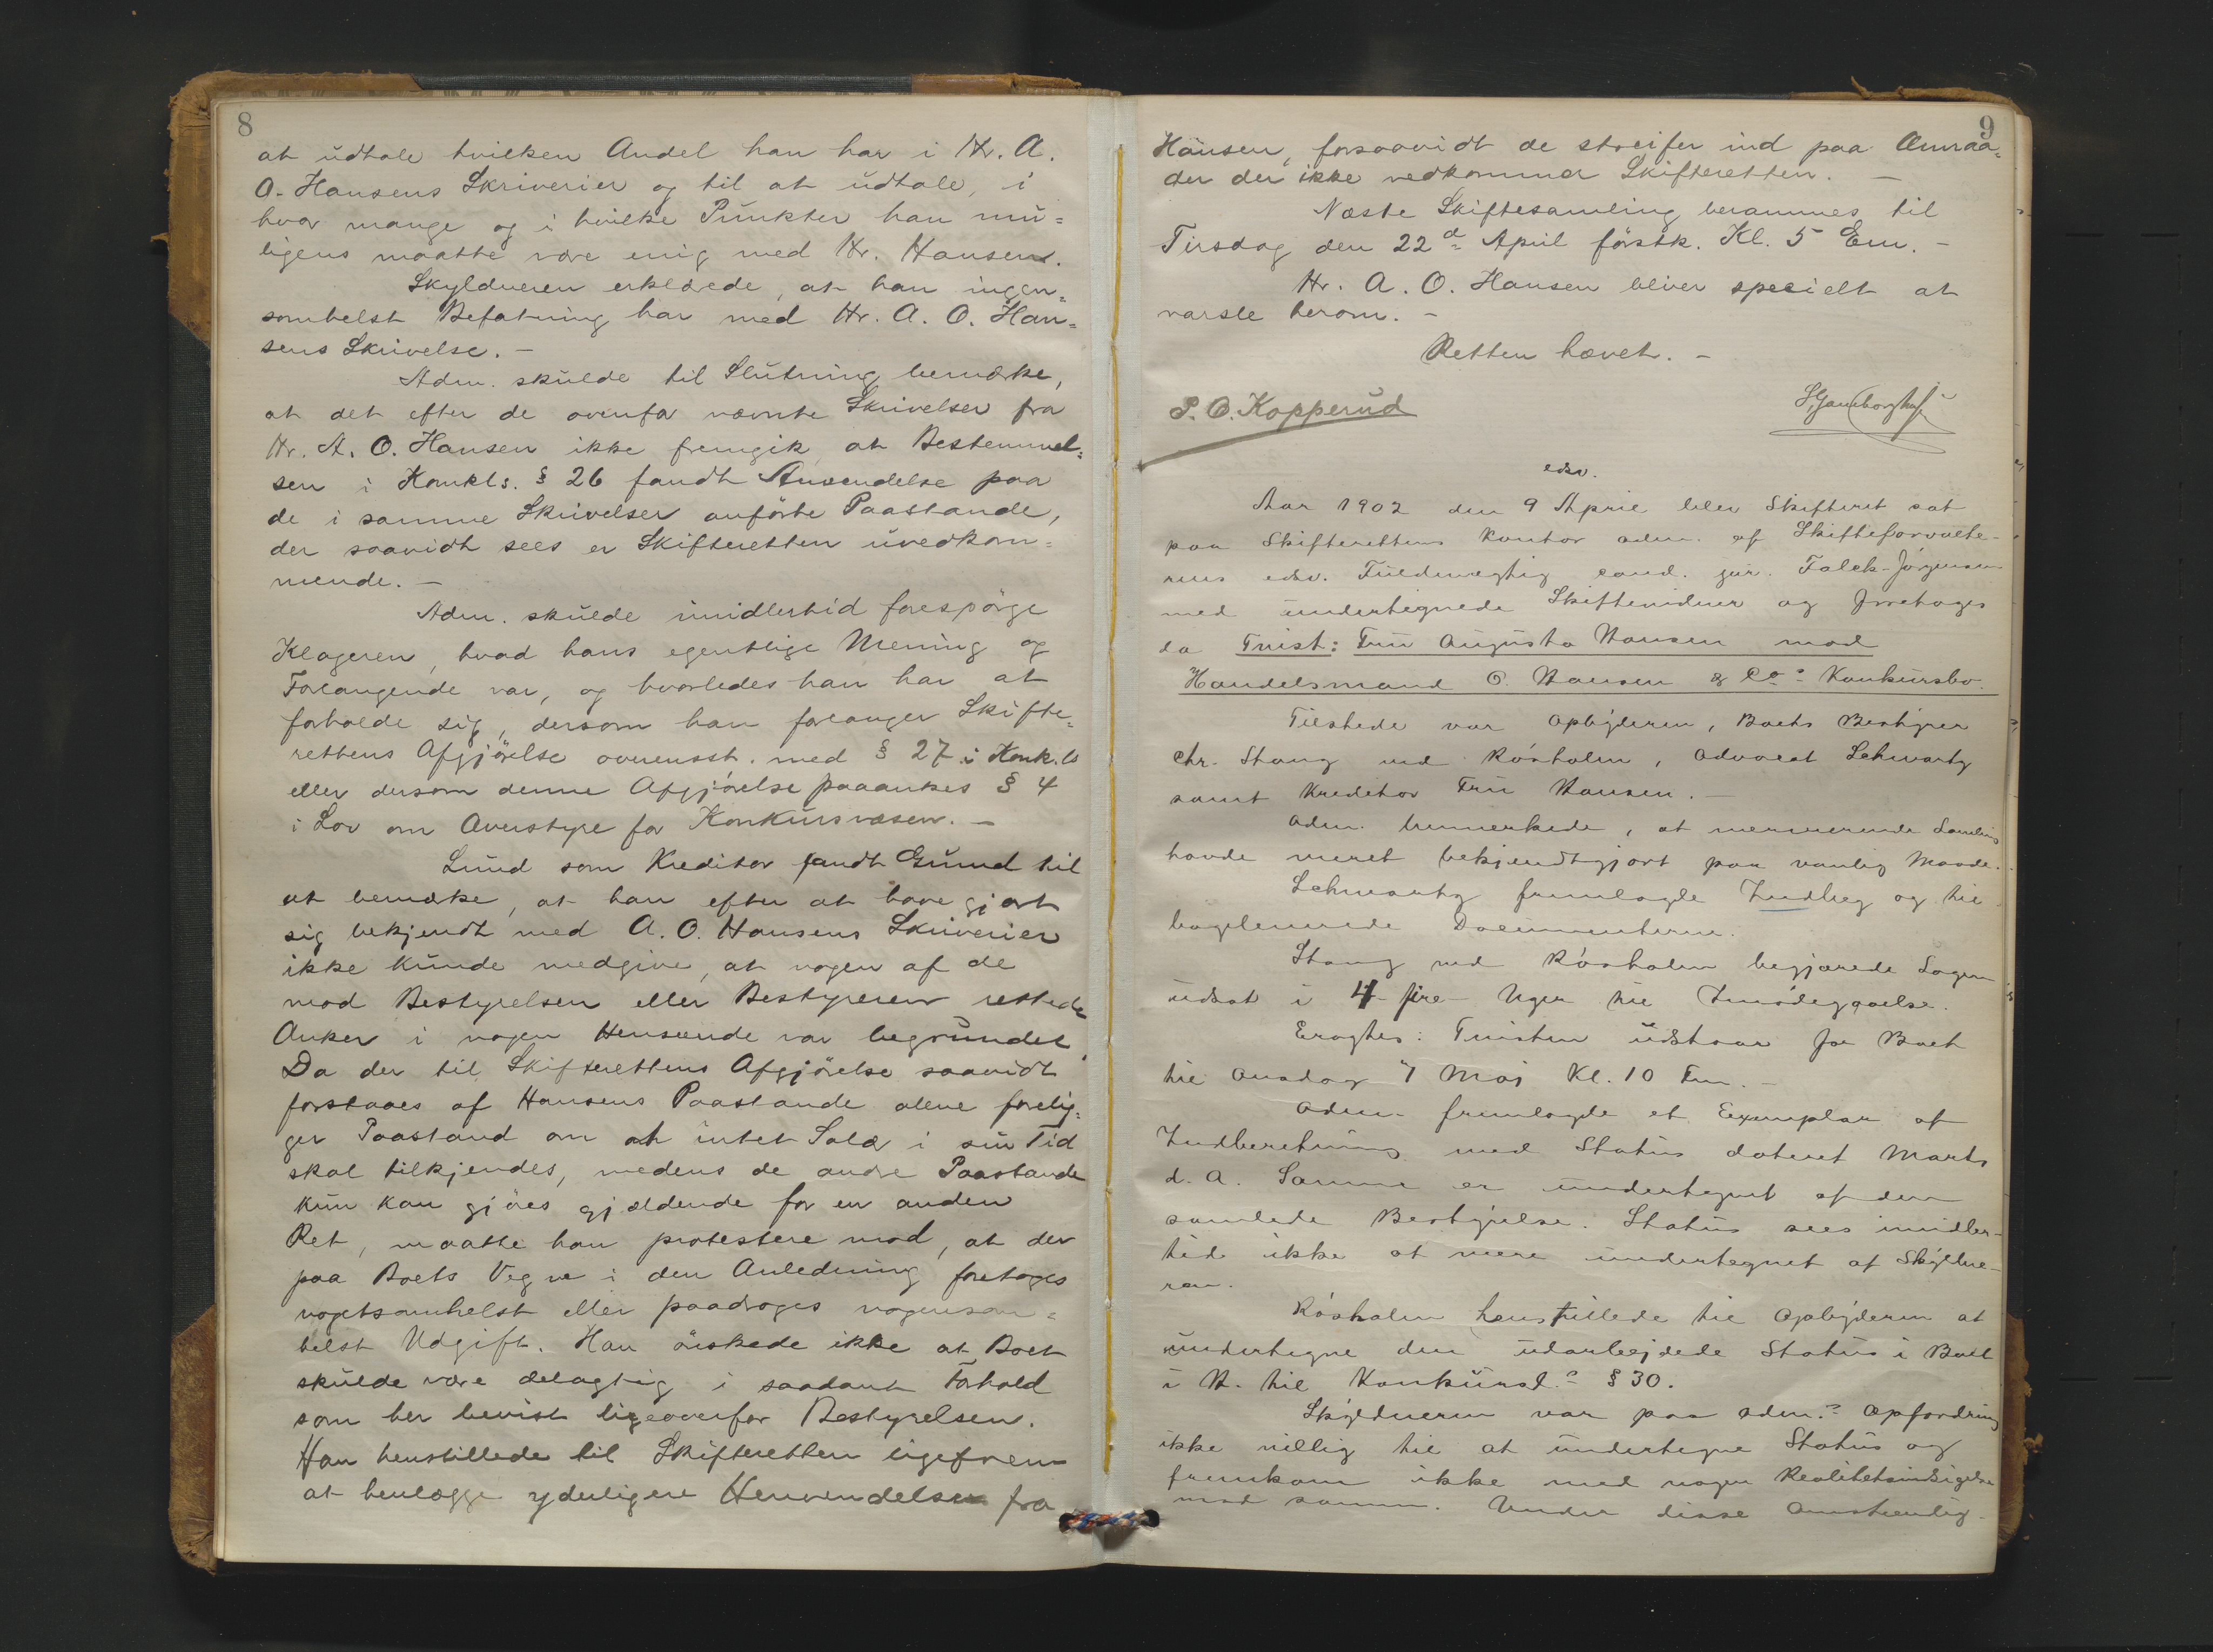 8
at udtale hvilken Andel han har i Hr. A.
O. Hansens Skriverier og til at udtale, i
hvor mange og i hvilke Punkter han mu=
ligens maatte være enig med Hr. Hansen.
Skyldneren erklærede, at han ingen=
somhelst Befatning har med Hr. A. O. Han=
sens Skrivelse. –
Adm. skulde til Slutning bemærke,
at det efter de ovenfor nævnte Skrivelser fra
Hr. A. O. Hansen ikke fremgik at Bestemmel=
sen i Konkls. § 26 fandt Anvendelse paa
de i samme Skrivelser anførte Paastande,
der saavidt sees er Skifteretten uvedkom=
mende. –
Adm. skulde imidlertid forespørge
Klageren, hvad hans egentlige Mening og
Forlangende var, og hvorledes han har at
forholde sig, dersom han forlanger Skifte=
rettens Afgjørelse overensst. med § 27 i Konk.ls
eller dersom denne Afgjørelse paaankes § 4
i Lov om Overstyre for Konkursvæsen. –
Lund som Kreditor fandt Grund til
at bemærke, at han efter at have gjort
sig bekjendt med A. O. Hansens Skriverier
ikke kunde medgive, at nogen af de
mod Bestyrelsen eller Bestyreren rettede
Anker i nogen Henseende var begrundet.
Da der til Skifterettens Afgjørelse saavidt
forstaaes af Hansens Paastande alene forelig=
ger Paastand om at intet Salær i sin Tid
skal tilkjendes, medens de andre Paastande
kun kan gjøres gjældende for en anden
Ret, maatte han protestere mod, at der
paa Boets Vegne i den Anledning foretages
nogetsomhelst eller paadrages nogensom=
helst Udgift. Han ønskede ikke at Boet
skulde være delagtig i saadant Forhold
som her bevist ligeoverfor Bestyrelsen.
Han henstillede til Skifteretten ligefrem
at henlægge yderligere Henvendelser fra
9
Hansen, forsaavidt de streifer ind paa Omraa=
der der ikke vedkommer Skifteretten. –
Næste Skiftesamling berammes til
Tirsdag den 22d April førstk. Kl. 5 Em. –
Hr. A. O. Hansen bliver specielt at
varsle herom. –
Retten hævet. –
P. O. Kopperud
edsv.
Aar 1902 den 9 April blev Skifteret sat
paa Skifterettens Kontor adm. af Skifteforvalte-
rens edsv. Fuldmægtig cand. jur. Falck-Jørgensen
med undertegnede Skiftevidner og foretoges
da Tvist: Fru Augusta Hansen mod
Handelsmand O. Hansen & Co.s Konkursbo.
Tilstede var Opbyderen, Boets Bestyrer
Chr. Stang ved Rosholm, Advocat Schwartz
samt Kreditor Fru Hansen. –
Adm. bemerkede, at nærværende Samling
havde været bekjendtgjort paa vanlig Maade.
Schwartz fremlagde Indlæg og til
bageleverede Documenterne.
Stang ved Rosholm begjærede Sagen
udsat i 4 fire Uger til Imødegaaelse.
Eragtes: Tvisten udstaar for Boet
til Onsdag 7 Mai Kl. 10 Fm. –
Adm. fremlagde et Exemplar af
Indberetning med Status dateret Marts
d. A. Samme er undertegnet af den
samlede Bestyrelse. Status sees imidler-
tid ikke at være undertegnet af Skyldne-
ren.
Rosholm henstillede til Opbyderen at
undertegne den udarbejdede Status i Boet
i H. til Konkursl.s § 30.
Skyldneren var paa Adm.s Opfordring
ikke villig til at undertegne Status og
fremkom ikke med nogen Realitetsindsigelse
mod samme. Under disse Omstændig-